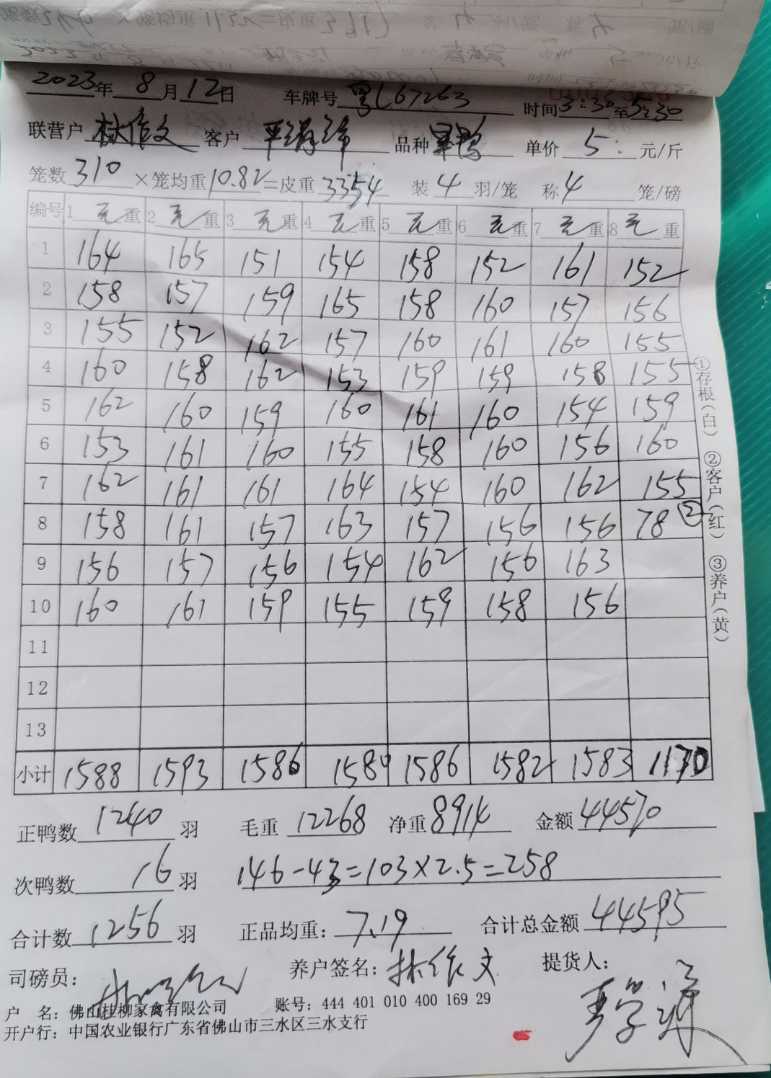 2023年 8 月 12 日 车牌号 粤L67263 时间3:30至5:30
联营户 林作文 客户 品种 单价 5 元/斤
笼数 310 ×笼均重 10.82 =皮重 3354 装 4 羽/笼 称 4 笼/磅
编号 1 毛 重 2 毛 重 3 毛 重 4 毛 重 5 毛 重 6 毛 重 7 毛 重 8 毛 重
1 164 165 151 154 158 152 161 152
2 158 157 159 165 158 160 157 156
3 155 152 162 157 160 161 160 155
4 160 158 162 153 159 159 158 155
5 162 160 159 160 161 160 154 159
6 153 161 160 155 158 160 156 160
7 162 161 161 164 154 160 162 155
8 158 161 157 163 157 156 156 78②
9 156 157 156 154 162 156 163
10 160 161 159 155 159 158 156
11
12
13
小计 1588 1593 1586 1580 1586 1582 1583 1170
正鸭数 1240 羽 毛重 12268 净重 8914 金额 44570
次鸭数 16 羽 146-43=103×2.5=258
合计数 1256 羽 正品均重: 7.19 合计总金额 44595
司磅员: 养户签名: 林作文 提货人:
户 名: 佛山桂柳家禽有限公司 账号: 444 401 010 400 169 29
开户行: 中国农业银行广东省佛山市三水区三水支行
①存根(白) ②客户(红) ③养户(黄)